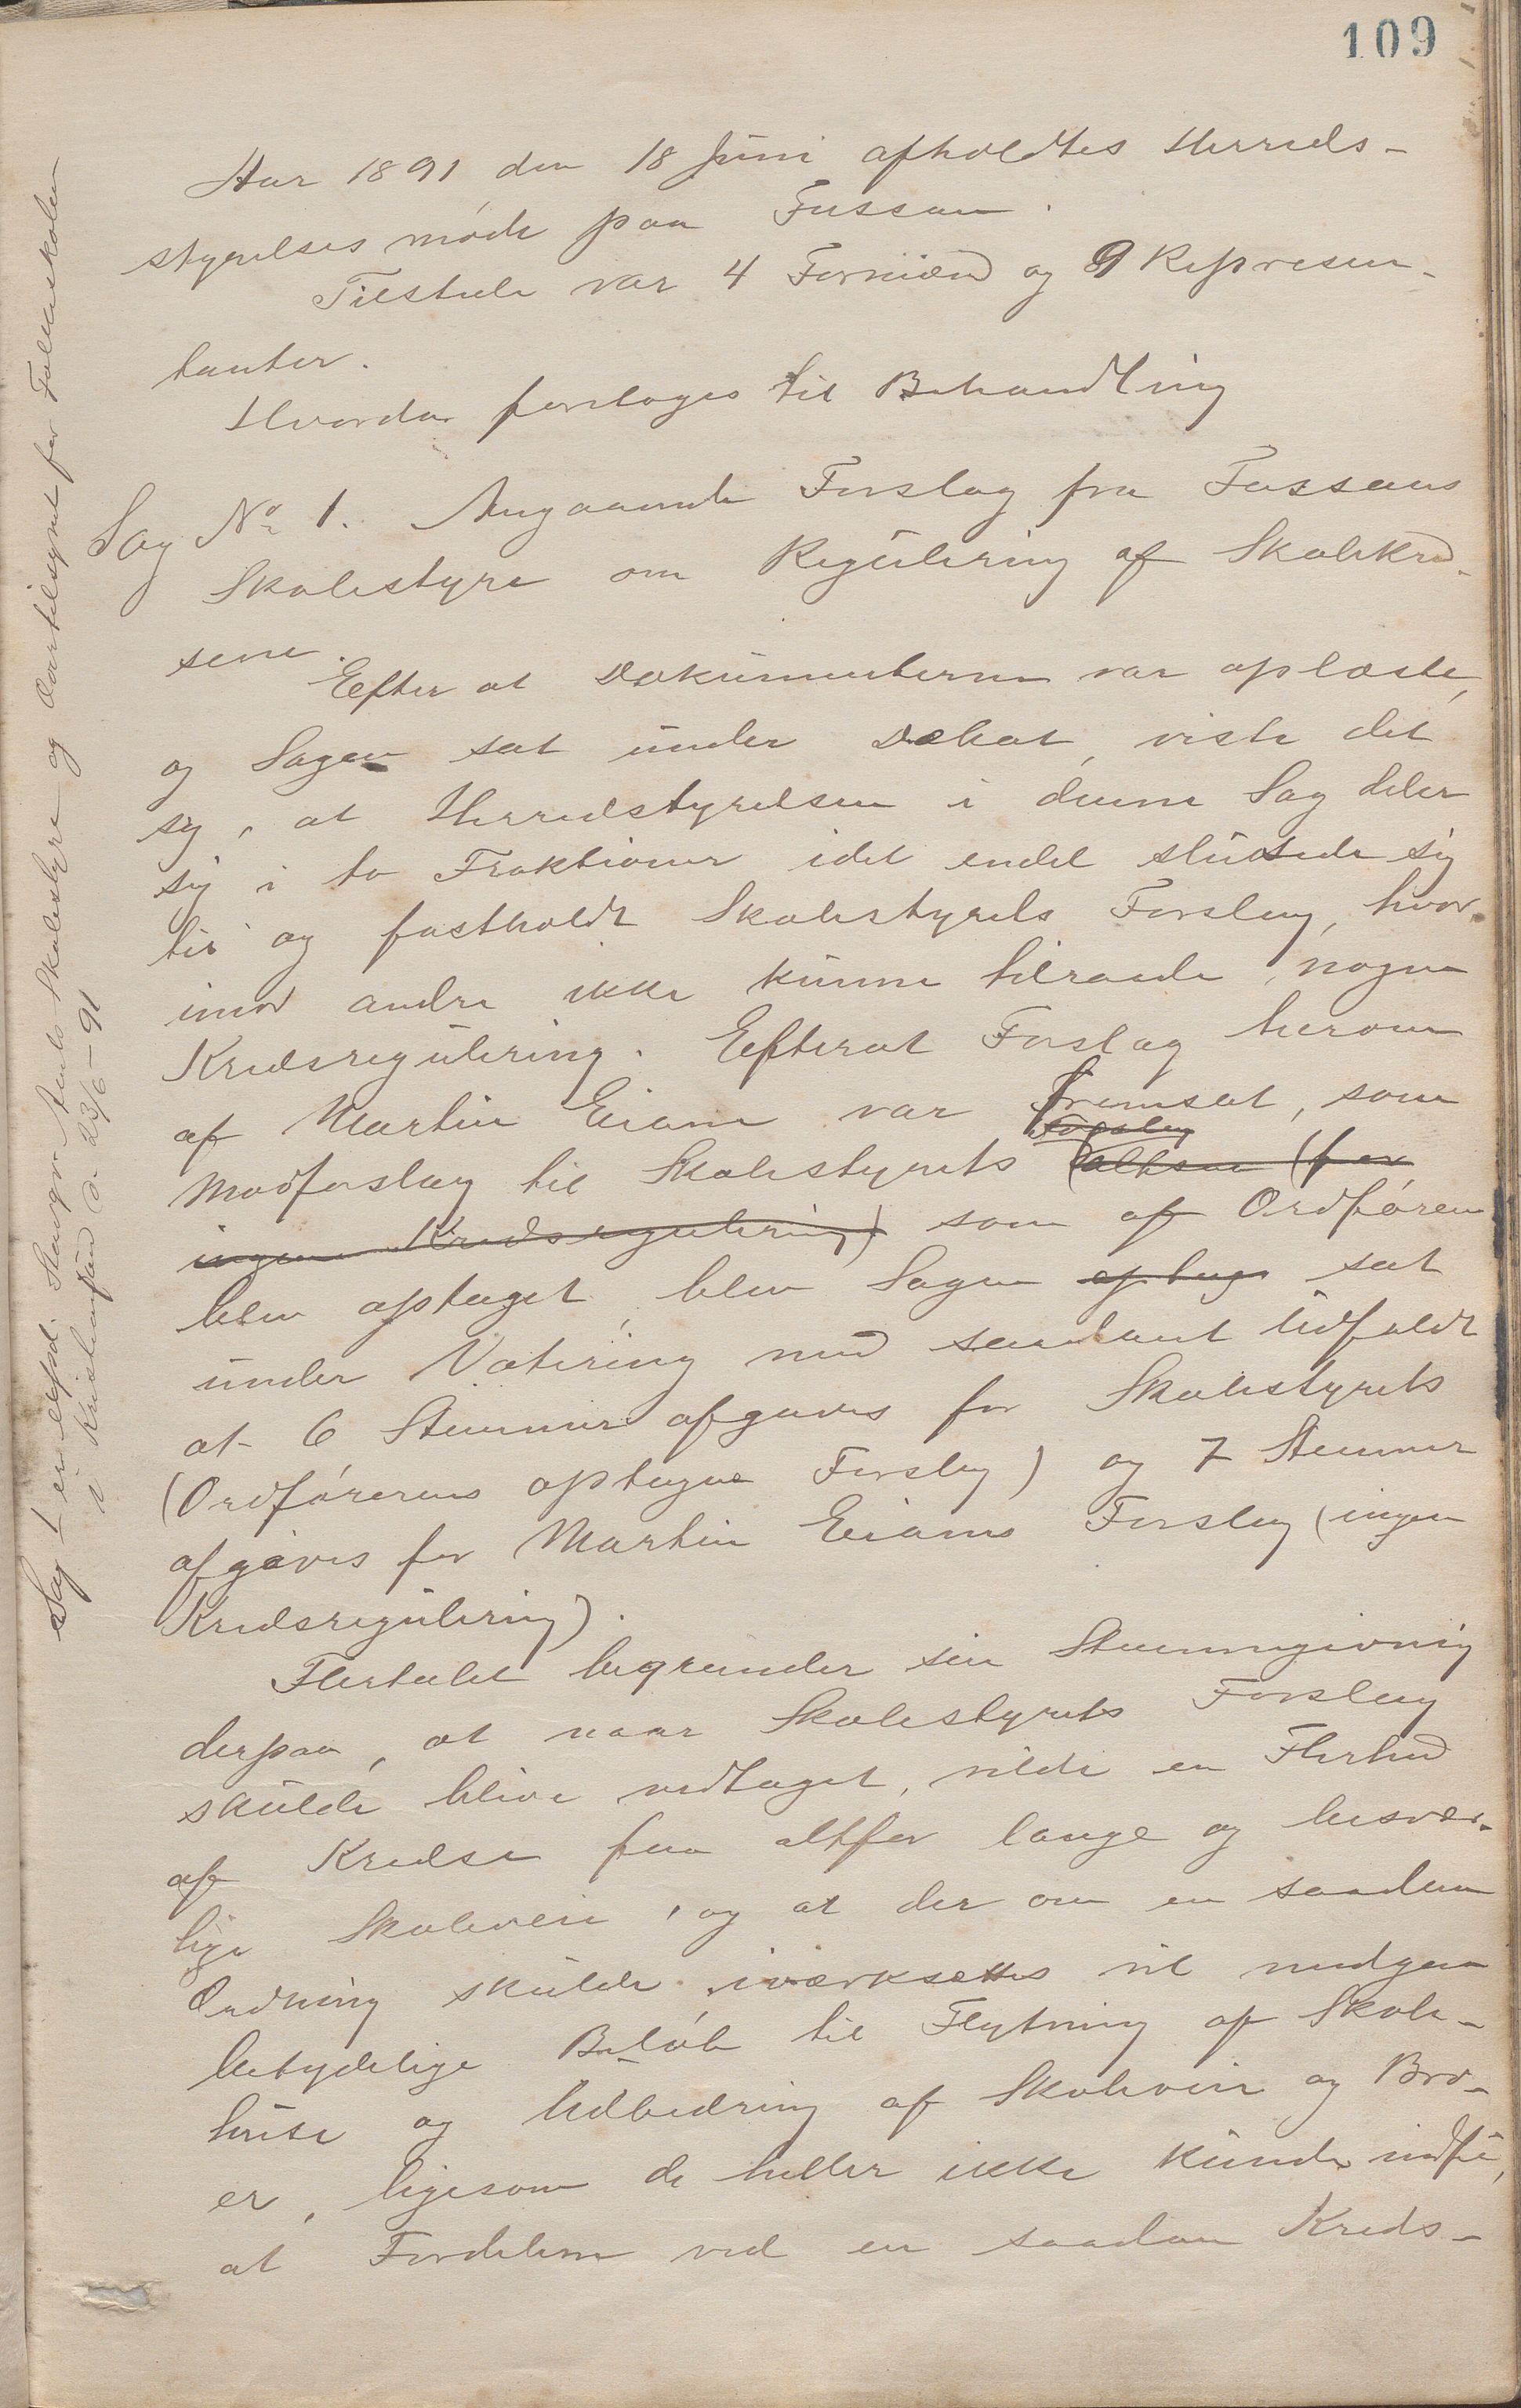 109
Aar 1891 den 18 Juni afholdtes Herreds-
styrelsesmøde paa Fossan.
Tilstede var 4 Formænd og 9 Represen-
tanter.
Hvorda foretoges til Behandling
Sag No 1. Angaaende Forslag fra Fossans
Skolestyre om Regulering af Skolekred-
sene.
Efter at Dokumenterne var oplæste,
og Sagen sat under Debat, viste det
sig, at Herredstyrelsen i denne Sag deler
sig i to Fraktioner idet endel sluttede sig
til og fastholdt Skolestyrets Forslag, hvor-
imod andre ikke kunne tilraade nogen
Kredsregulering. Efterat Forslag herom
af Martin Eiane var fremsat, som
Forslag
Modforslag til Skolestyrets (altsaa (for
ingen Kredsregulering) som af Ordføren
blev optaget, blev Sagen optag sat
under Votering med saadant Udfaldt
at 6 Stemmer afgaves for Skolestyrets
(Ordførerens optagne Forslag) og 7 Stemmer
afgaves for Martin Eianes Forslag (ingen
Kredsregulering).
Flertalet begrunder sin Stemmegivnig
derpaa, at naar Skolestyrets Forslag
skulde blive vedtaget, vilde en Flerhed
af Kredse faa altfor lange og besvær-
lige Skoleveie, og at der om en saadan
Ordning skulde iværksættes vil medgaa
betydelige Beløb til Flytning af Skole-
huse og Udbedring af Skoleveie og Bro-
er, ligesom de heller ikke kunde indse,
at Fordelene ved en saadan Kreds-
Sag 1 er expd. Stavgr Amts Skolestyre og Overtilsynet for Folkeskolen
i Kristiansand d. 23/6-91